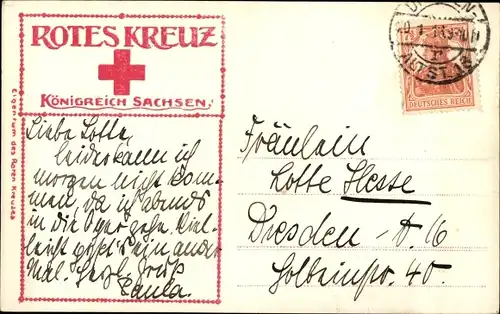 ROTES KREUZ
KÖNIGREICH SACHSEN.
Eigentum des Roten Kreuzes
Liebe Lotte,
leider kann ich
morgen nicht kom-
men, da ich abends
in die Oper gehe. Viel-
leicht geht's ein ander
Mal. Herzl. Gruß
Paula.
ALTST.
DEUTSCHES REICH
Fräulein
Lotte Hesse
Dresden - A. 16
Holbeinstr. 40.